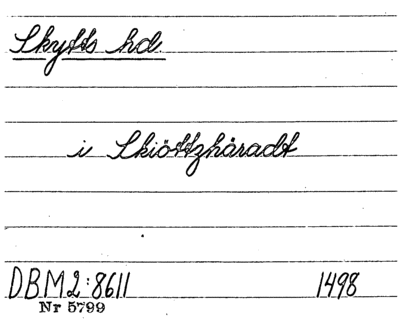 Skytts hd.
i Skiöttzhäradt
DBM 2:8611 1498
Nr 5799